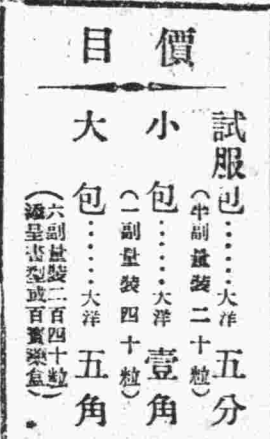 價目
試服包……大洋五分
(半副量裝二十粒)
小包……大洋壹角
(一副量裝四十粒)
大包……大洋五角
(六副量裝二百四十粒
添呈書型或百寶藥盒)